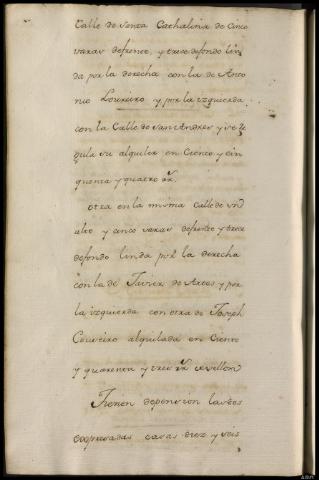 Calle de Santa Cathalina de cinco
varas defrente, y trece defondo lin
da por la derecha con la de Anto
nio Loureiro y por la izquierda
con la Calle de San Andres y se re
gula su alquiler en Ciento y cin
quenta y quatro rr.
otra en la misma Calle de un
alto y cinco varas defrente y trece
defondo linda por la derecha
con la de Javier de Arcos y por
la izquierda con otra de Joseph
Couceiro alquilada en Ciento
y quarenta y tres rr. de vellon
Tienen depension las dos
expresadas casas diez y seis